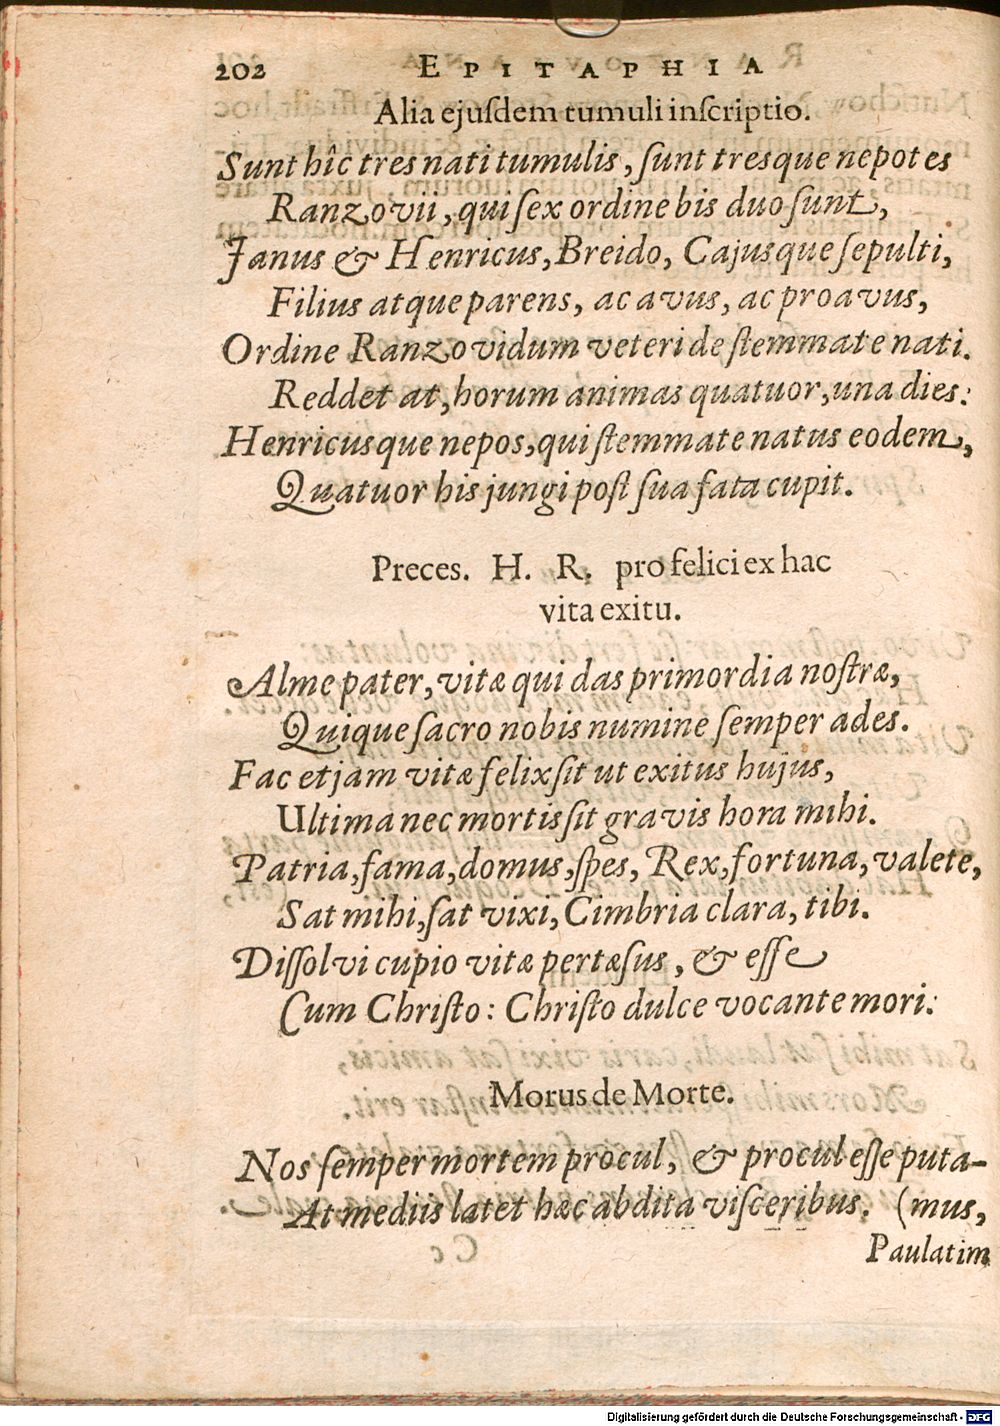 202 EPITAPHIA
Alia ejuſdem tumuli inſcriptio.
Sunt hîc tres nati tumulis, ſunt tresque nepotes
Ranzovii, qui ſex ordine bis duo ſunt,
Janus & Henricus, Breido, Cajusque ſepulti,
Filius atque parens, ac avus, ac proavus,
Ordine Ranzovidum veteri de ſtemmate nati.
Reddet at, horum animas quatuor, una dies:
Henricusque nepos, qui ſtemmate natus eodem,
Quatuor his jungi poſt ſua fata cupit.
Preces. H. R. pro felici ex hac
vita exitu.
Alme pater, vitæ qui das primordia noſtræ,
Quique ſacro nobis numine ſemper ades.
Fac etjam vitæ felix ſit ut exitus hujus,
Ultima nec mortis ſit gravis hora mihi.
Patria, fama, domus, ſpes, Rex, fortuna, valete,
Sat mihi, ſat vixi, Cimbria clara, tibi.
Diſſolvi cupio vitæ pertæſus, & eſſe
Cum Chriſto: Chriſto dulce vocante mori:
Morus de Morte.
Nos ſemper mortem procul, & procul eſſe puta-
At mediis latet hæc abdita viſceribus. (mus,
Paulatim
Digitalisierung gefördert durch die Deutsche Forschungsgemeinschaft - DFG